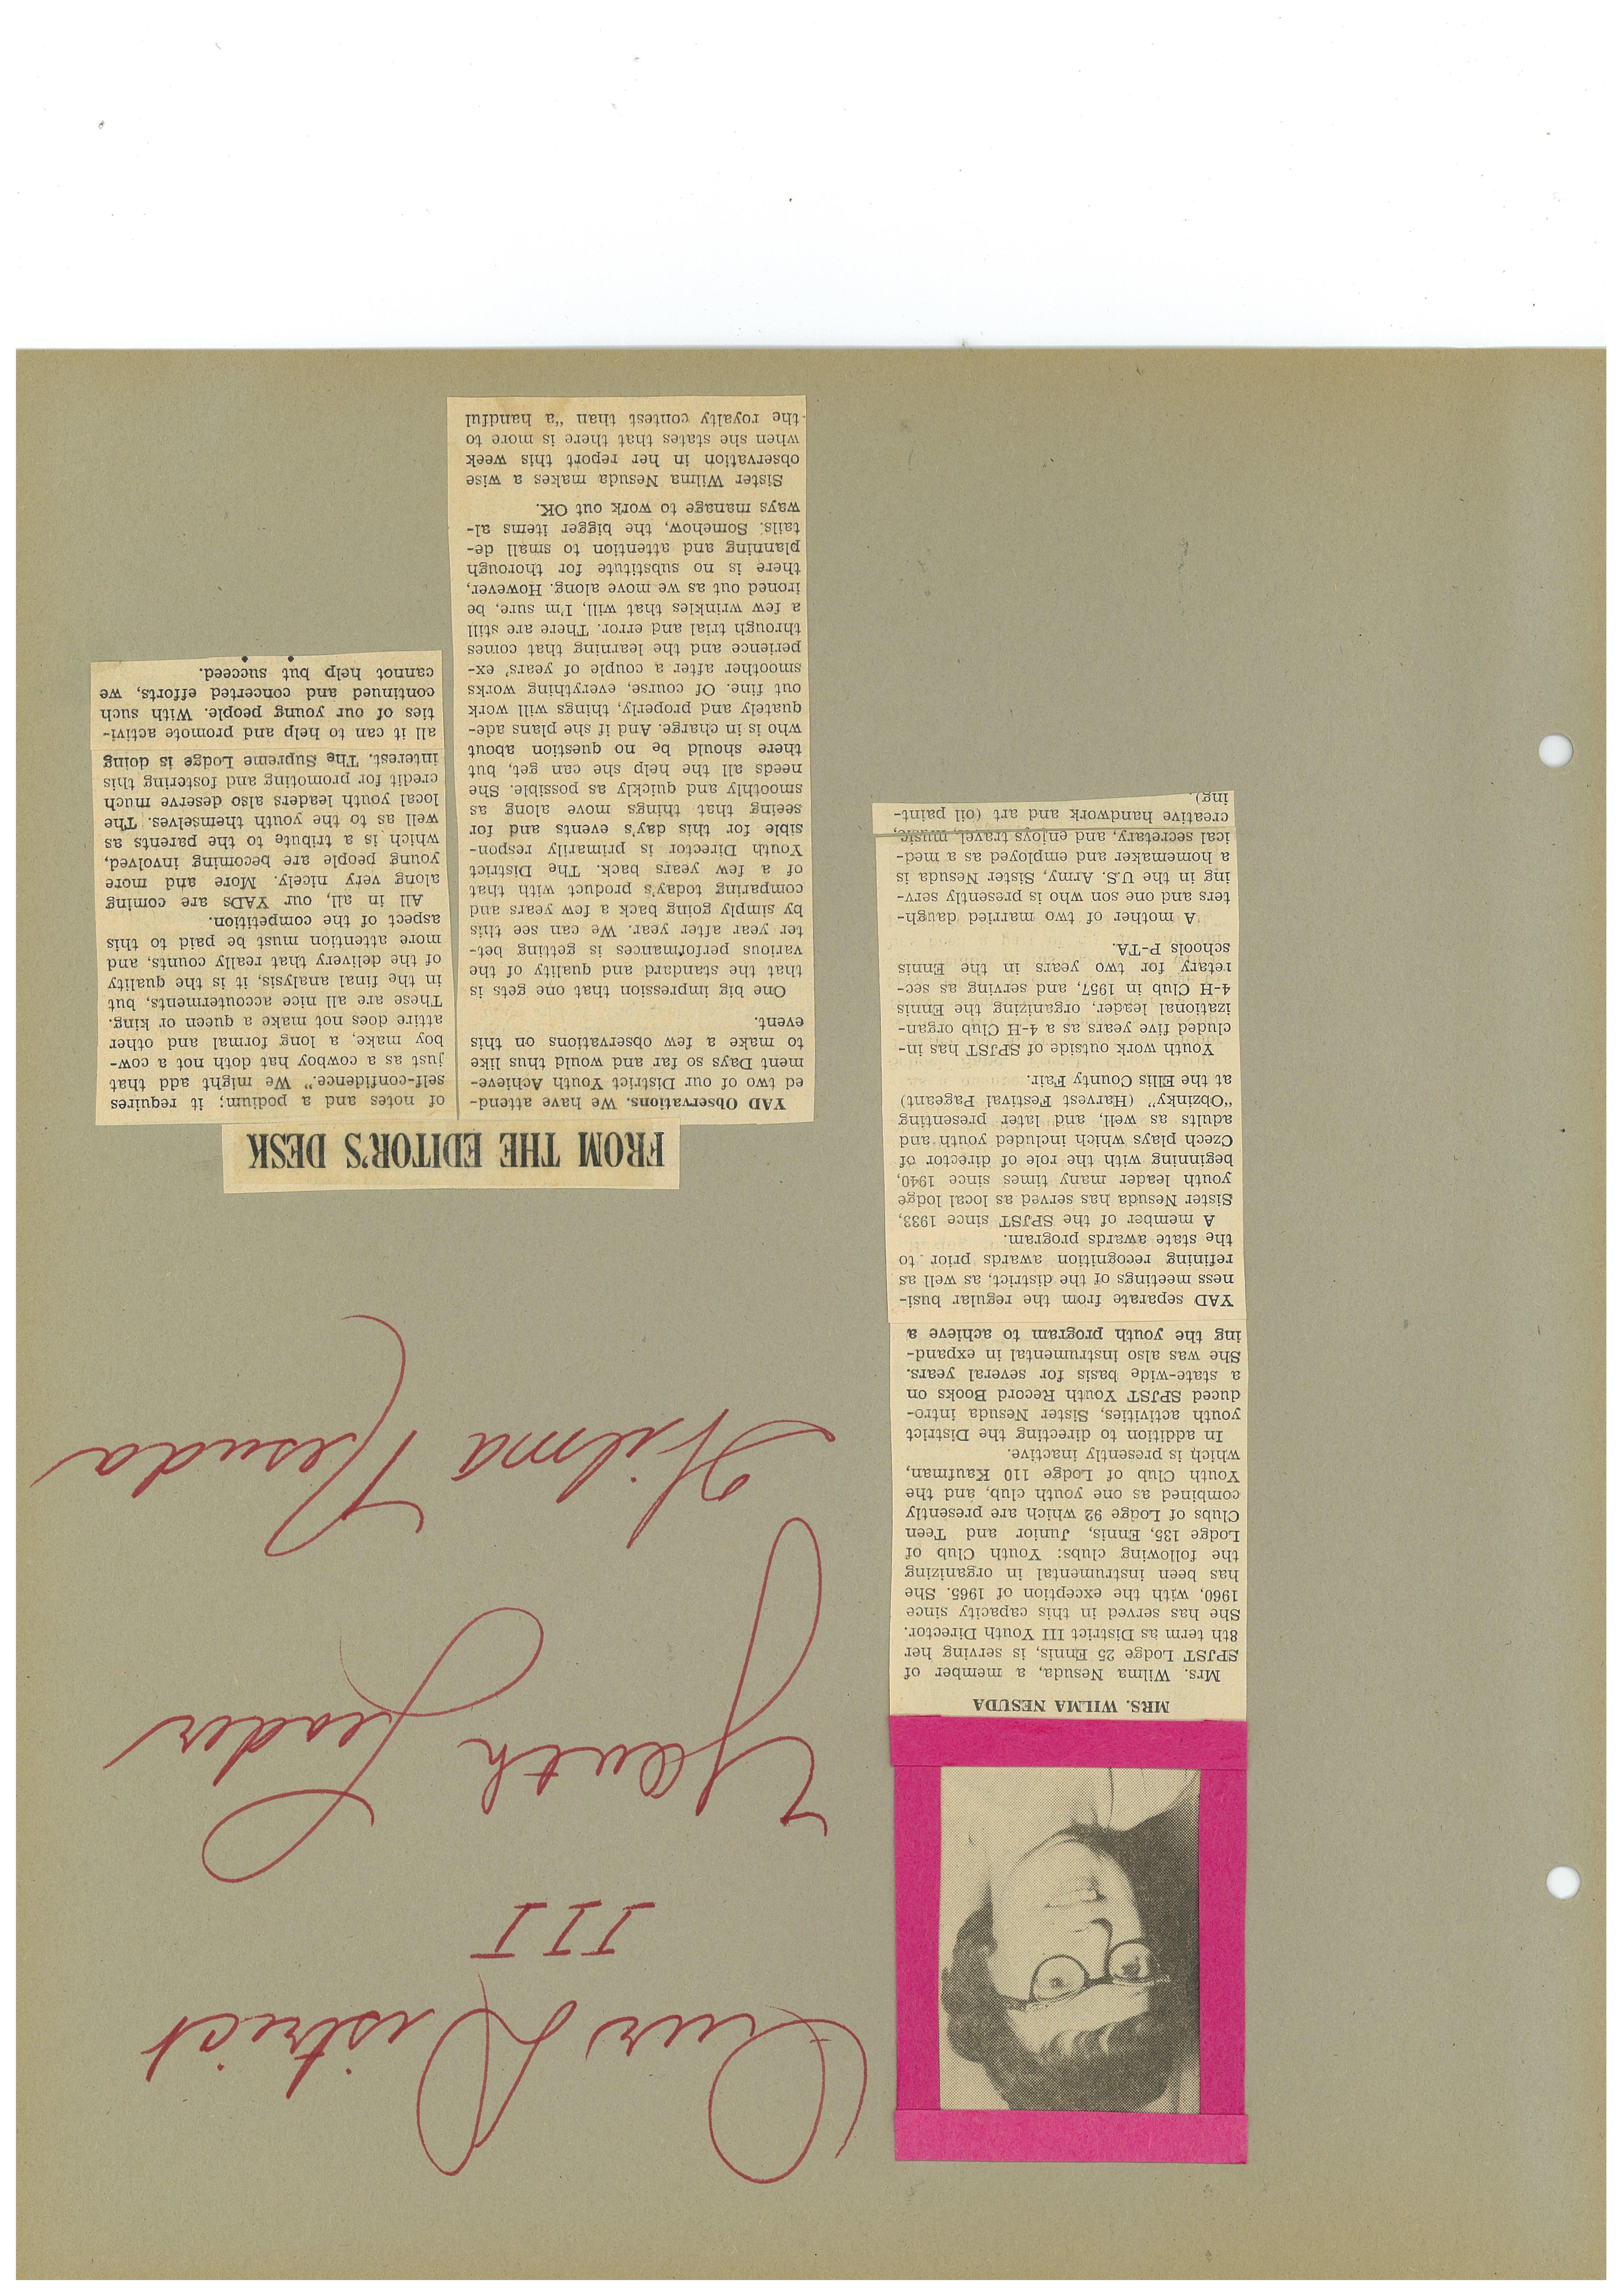 Our District
III
Youth Leader
Wilma Nesuda
MRS. WILMA NESUDA
Mrs. Wilma Nesuda, a member of
SPJST Lodge 25 Ennis, is serving her
8th term as District III Youth Director.
She has served in this capacity since
1960, with the exception of 1965. She
has been instrumental in organizing
the following clubs: Youth Club of
Lodge 135, Ennis, Junior and Teen
Clubs of Lodge 92 which are presently
combined as one youth club, and the
Youth Club of Lodge 110 Kaufman,
which is presently inactive.
In addition to directing the District
youth activities, Sister Nesuda intro-
duced SPJST Youth Record Books on
a state-wide basis for several years.
She was also instrumental in expand-
ing the youth program to achieve a
YAD separate from the regular busi-
ness meetings of the district, as well as
refining recognition awards prior to
the state awards program.
A member of the SPJST since 1933,
Sister Nesuda has served as local lodge
youth leader many times since 1940,
beginning with the role of director of
Czech plays which included youth and
adults as well, and later presenting
"Obzinky" (Harvest Festival Pageant)
at the Ellis County Fair.
Youth work outside of SPJST has in-
cluded five years as a 4-H Club organ-
izational leader, organizing the Ennis
4-H Club in 1957, and serving as sec-
retary for two years in the Ennis
schools P-TA.
A mother of two married daugh-
ters and one son who is presently serv-
ing in the U.S. Army, Sister Nesuda is
a homemaker and employed as a med-
ical secretary, and enjoys travel, music,
creative handwork and art (oil paint-
ing).
FROM THE EDITOR'S DESK
YAD Observations. We have attend-
ed two of our District Youth Achieve-
ment Days so far and would thus like
to make a few observations on this
event.
One big impression that one gets is
that the standard and quality of the
various performances is getting bet-
ter year after year. We can see this
by simply going back a few years and
comparing today's product with that
of a few years back. The District
Youth Director is primarily respon-
sible for this day's events and for
seeing that things move along as
smoothly and quickly as possible. She
needs all the help she can get, but
there should be no question about
who is in charge. And if she plans ade-
quately and properly, things will work
out fine. Of course, everything works
smoother after a couple of years' ex-
perience and the learning that comes
through trial and error. There are still
a few wrinkles that will, I'm sure, be
ironed out as we move along. However,
there is no substitute for thorough
planning and attention to small de-
tails. Somehow, the bigger items al-
ways manage to work out OK.
Sister Wilma Nesuda makes a wise
observation in her report this week
when she states that there is more to
the royalty contest than "a handful
of notes and a podium; it requires
self-confidence." We might add that
just as a cowboy hat doth not a cow-
boy make, a long formal and other
attire does not make a queen or king.
These are all nice accouterments, but
in the final analysis, it is the quality
of the delivery that really counts, and
more attention must be paid to this
aspect of the competition.
All in all, our YADs are coming
along very nicely. More and more
young people are becoming involved,
which is a tribute to the parents as
well as to the youth themselves. The
local youth leaders also deserve much
credit for promoting and fostering this
interest. The Supreme Lodge is doing
all it can to help and promote activi-
ties of our young people. With such
continued and concerted efforts, we
cannot help but succeed.